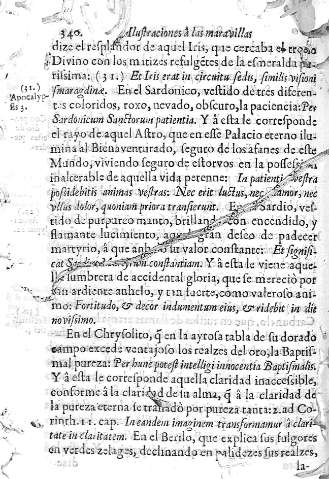 340. Ilustraciones à las maravillas
dize el resplandor de aquel Iris, que cercaba el trono
Divino con los matizes refulgẽtes de la esmeralda pu-
rissima: (31.) Et Iris erat in circuitu sedis, similis visioni
(31.)
Apocalyp-
smaragdinæ. En el Sardonico, vestido de tres diferen-
tes coloridos, roxo, nevado, obscuro, la paciencia: Per
Sardonicum Sanctorum patientia. Y à esta le corresponde
el rayo de aquel Astro, que en esse Palacio eterno ilu-
mina al Bienaventurado, seguro de los afanes de este
Mundo, viviendo seguro de estorvos en la possession
inalterable de aquella vida perenne: In patientia vestra
possidebitis animas vestras: Nec erit luctus, nec clamor, nec
vllus dolor, quoniam priora transierunt. En Sardio, ves-
tido de purpureo manto, brillando con encendido, y
flamante lucimiento, aquel gran deseo de padecer
martyrio, à que anhelò su valor constante: Et signifi-
cat constantiam. Y à esta le viene aque-
lla lumbrera de accidental gloria, que se mereciò por
tan ardiente anhelo, y tan fuerte, como valeroso ani-
mo: Fortitudo, & decor indumentum eius, & ridebit in die
novissimo.
En el Chrysolito, q̃ en la ayrosa tabla de su dorado
campo excede ventajoso los realzes del oro, la Baptis-
mal pureza: Per hunc potest intelligi innocentia Baptismalis.
Y à esta le corresponde aquella claridad inaccessible,
conforme à la claridad de su alma, q̃ à la claridad de
la pureza eterna se trasladò por pureza tanta: 2. ad Co-
rinth. 11. cap. In eandem imaginem transformamur à clari-
tate in claritatem. En el Berilo, que explica sus fulgores
en verdes zelages, declinando en palidezes sus realzes,
la-